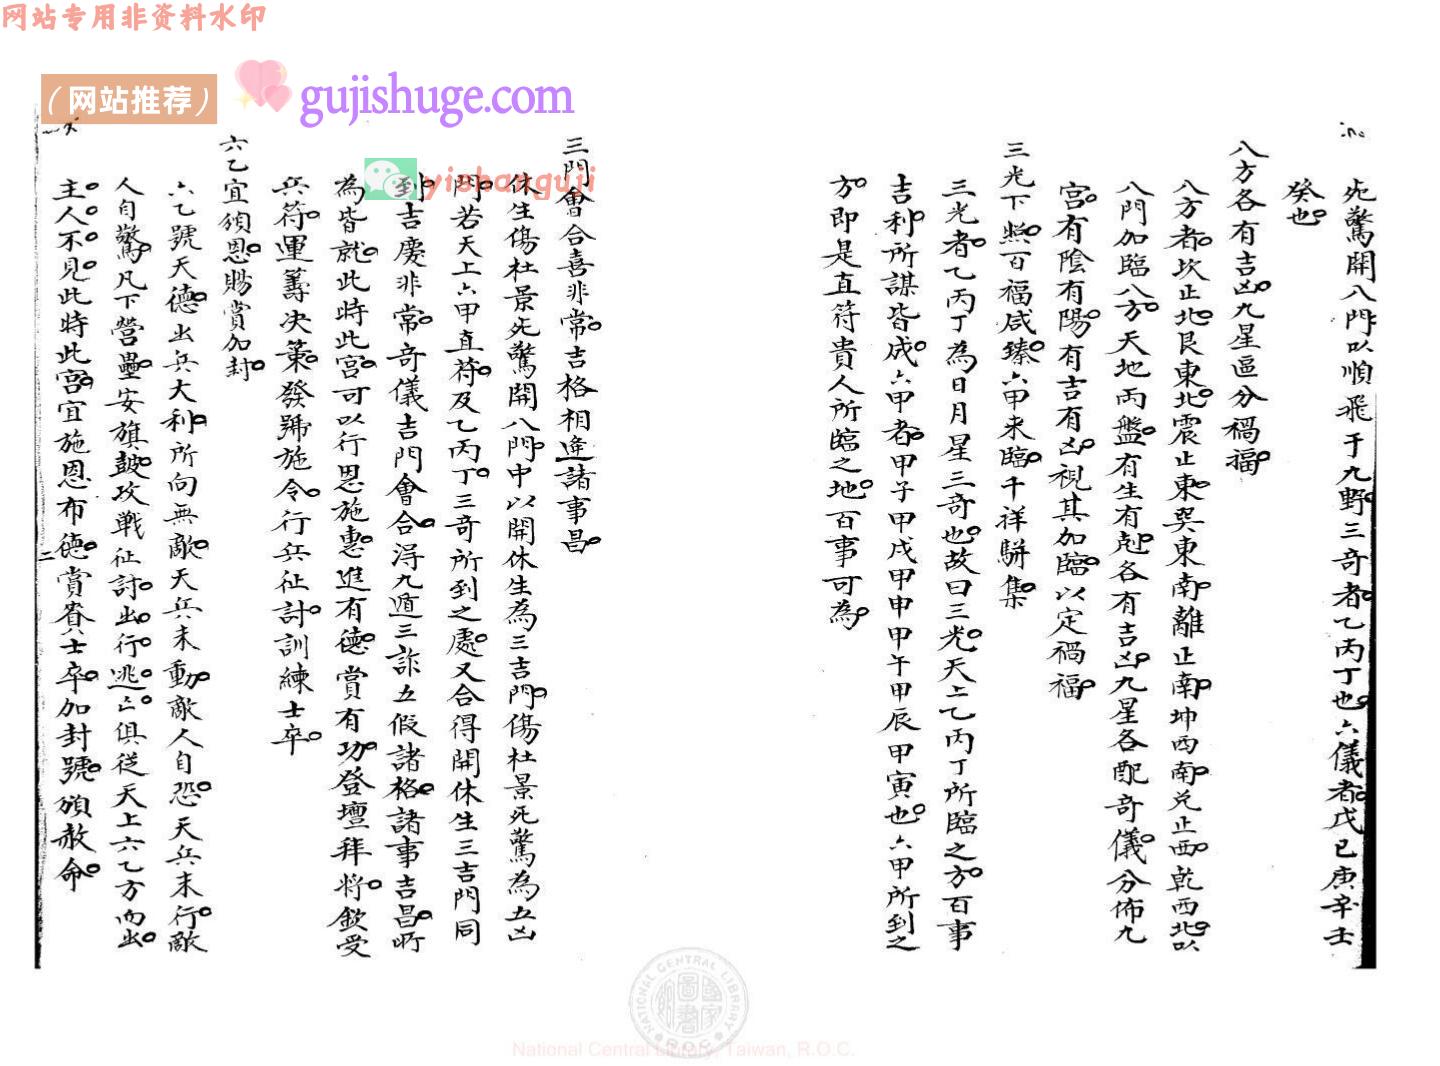 网站专用非资料水印
（网站推荐）
gujishuge.com
yishanguji
死驚開八門以順飛于九野三奇者乙丙丁也六儀者戊己庚辛壬
癸也
八方各有吉凶九星區分禍福
八方者坎止北艮東北震止東巽東南離止南坤西南兌止西乾西北以
八門加臨八方天地兩盤有生有剋各有吉凶九星各配奇儀分佈九
宮有陰有陽有吉有凶視其加臨以定禍福
三光下照百福咸臻六甲来臨千祥駢集
三光者乙丙丁為日月星三奇也故曰三光天上乙丙丁所臨之方百事
吉利所謀皆成六甲者甲子甲戌甲申甲午甲辰甲寅也六甲所到之
方即是直符貴人所臨之地百事可為
三門會合喜非常吉格相逢諸事昌
休生傷杜景死驚開八門中以開休生為三吉門傷杜景死驚為五凶
門若天上六甲直符及乙丙丁三奇所到之處又合得開休生三吉門同
到吉慶非常奇儀吉門會合得九遁三詐五假諸格諸事吉昌所
為皆就此時此宮可以行恩施惠進有德賞有功登壇拜将欽受
兵符運籌决策發號施令行兵征討訓練士卒
六乙宜頒恩賜賞加封
六乙號天德出兵大利所向無敵天兵未動敵人自恐天兵未行敵
人自驚凡下營壘安旗鼓攻戰征討出行逃亡俱從天上六乙方而出
主人不見此時此宮宜施恩布德賞眷士卒加封號頒赦命
二
National Central Library, Taiwan, R.O.C.
NATIONAL CENTRAL LIBRARY
R.O.C.
國家圖書館